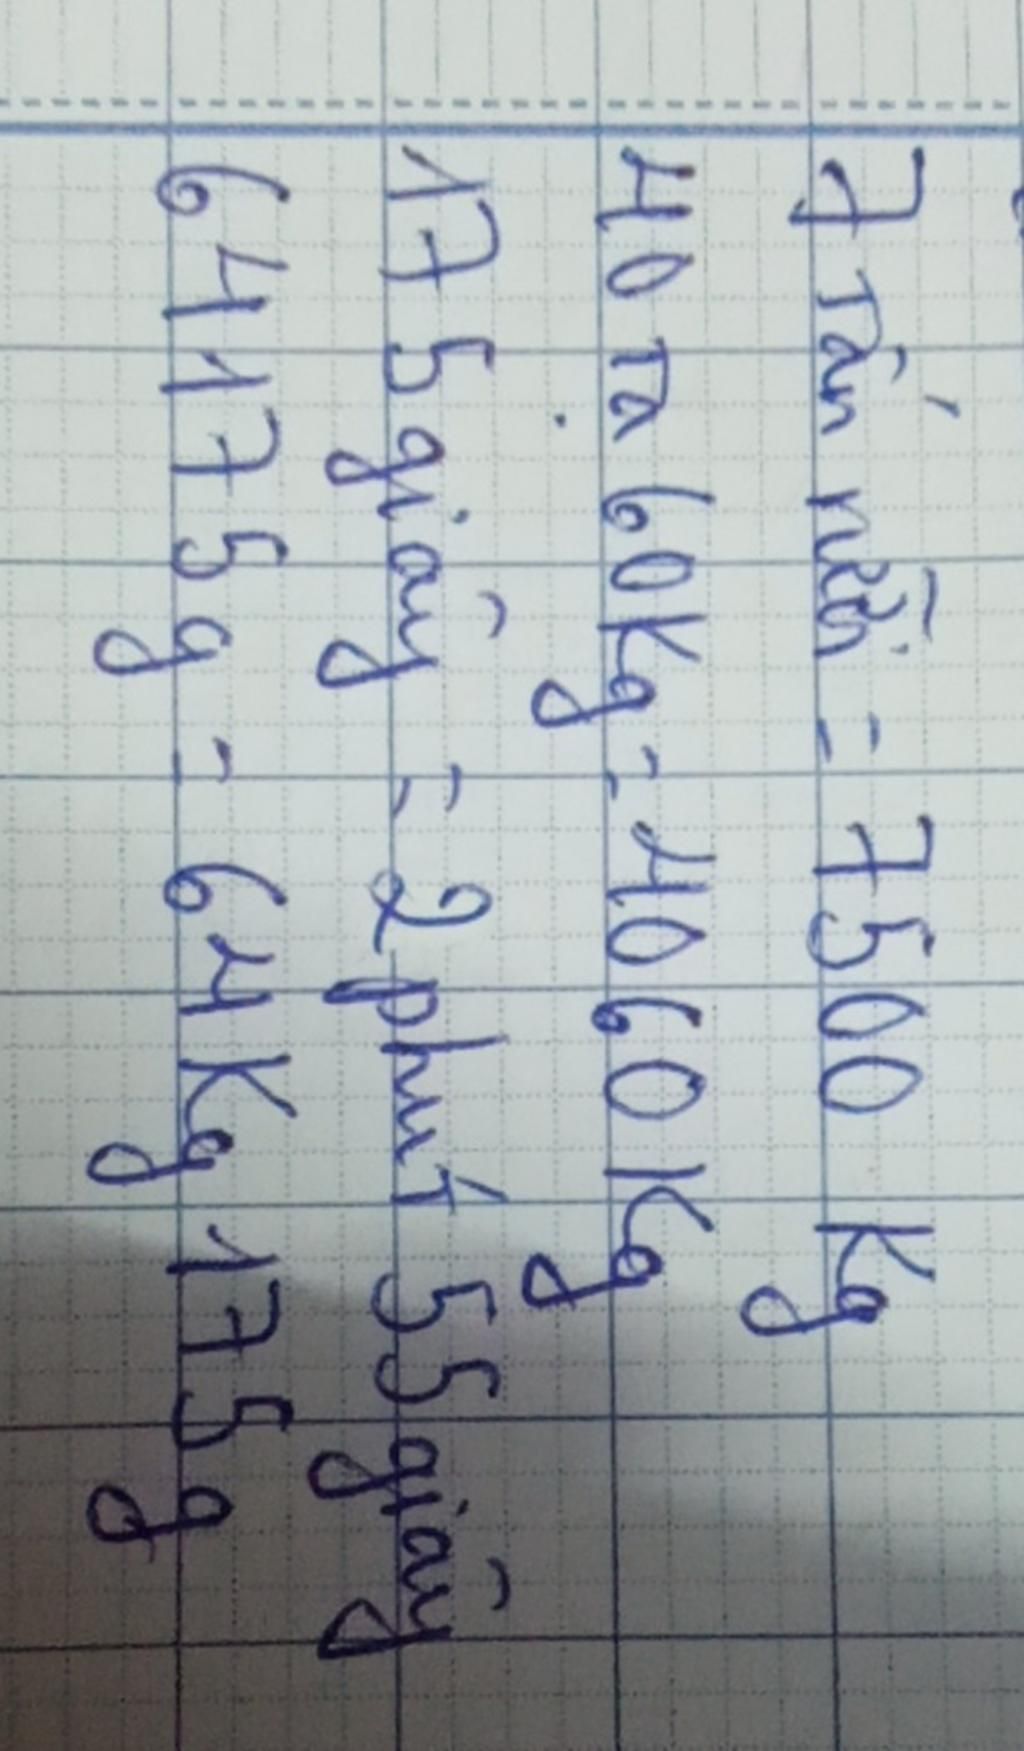 7 Tấn rưỡi = 7500 Kg
40 Tạ 60 Kg = 4060 Kg
175 giây = 2 phút 55 giây
64175g = 64Kg 175g